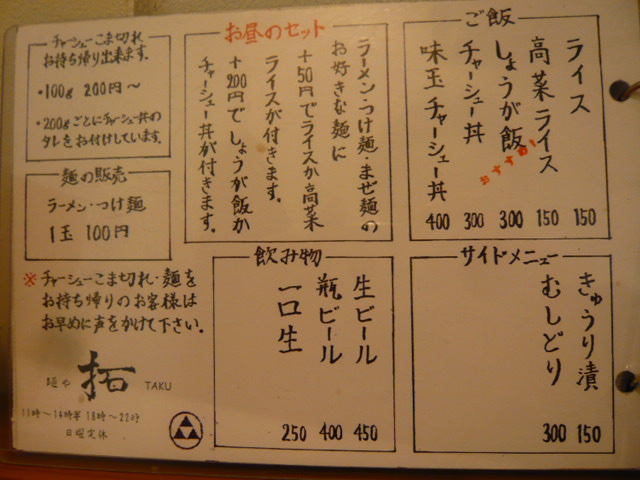 ご飯
ライス 150
高菜ライス 150
しょうが飯 300
おすすめ!
チャーシュー丼 300
味玉チャーシュー丼 400
お昼のセット
ラーメン・つけ麺・まぜ麺の
お好きな麺に
+50円でライスか高菜
ライスが付きます。
+200円でしょうが飯か
チャーシュー丼が付きます。
チャーシューこま切れ
お持ち帰り出来ます。
・100g 200円〜
・200gごとにチャーシュー丼の
タレをお付けしています。
麺の販売
ラーメン・つけ麺
1玉 100円
※チャーシューこま切れ・麺を
お持ち帰りのお客様は
お早めに声をかけて下さい。
サイドメニュー
きゅうり漬 150
むしどり 300
飲み物
生ビール 450
瓶ビール 400
一口生 250
麺や 拓 TAKU
11時〜14時半 18時〜22時
日曜定休